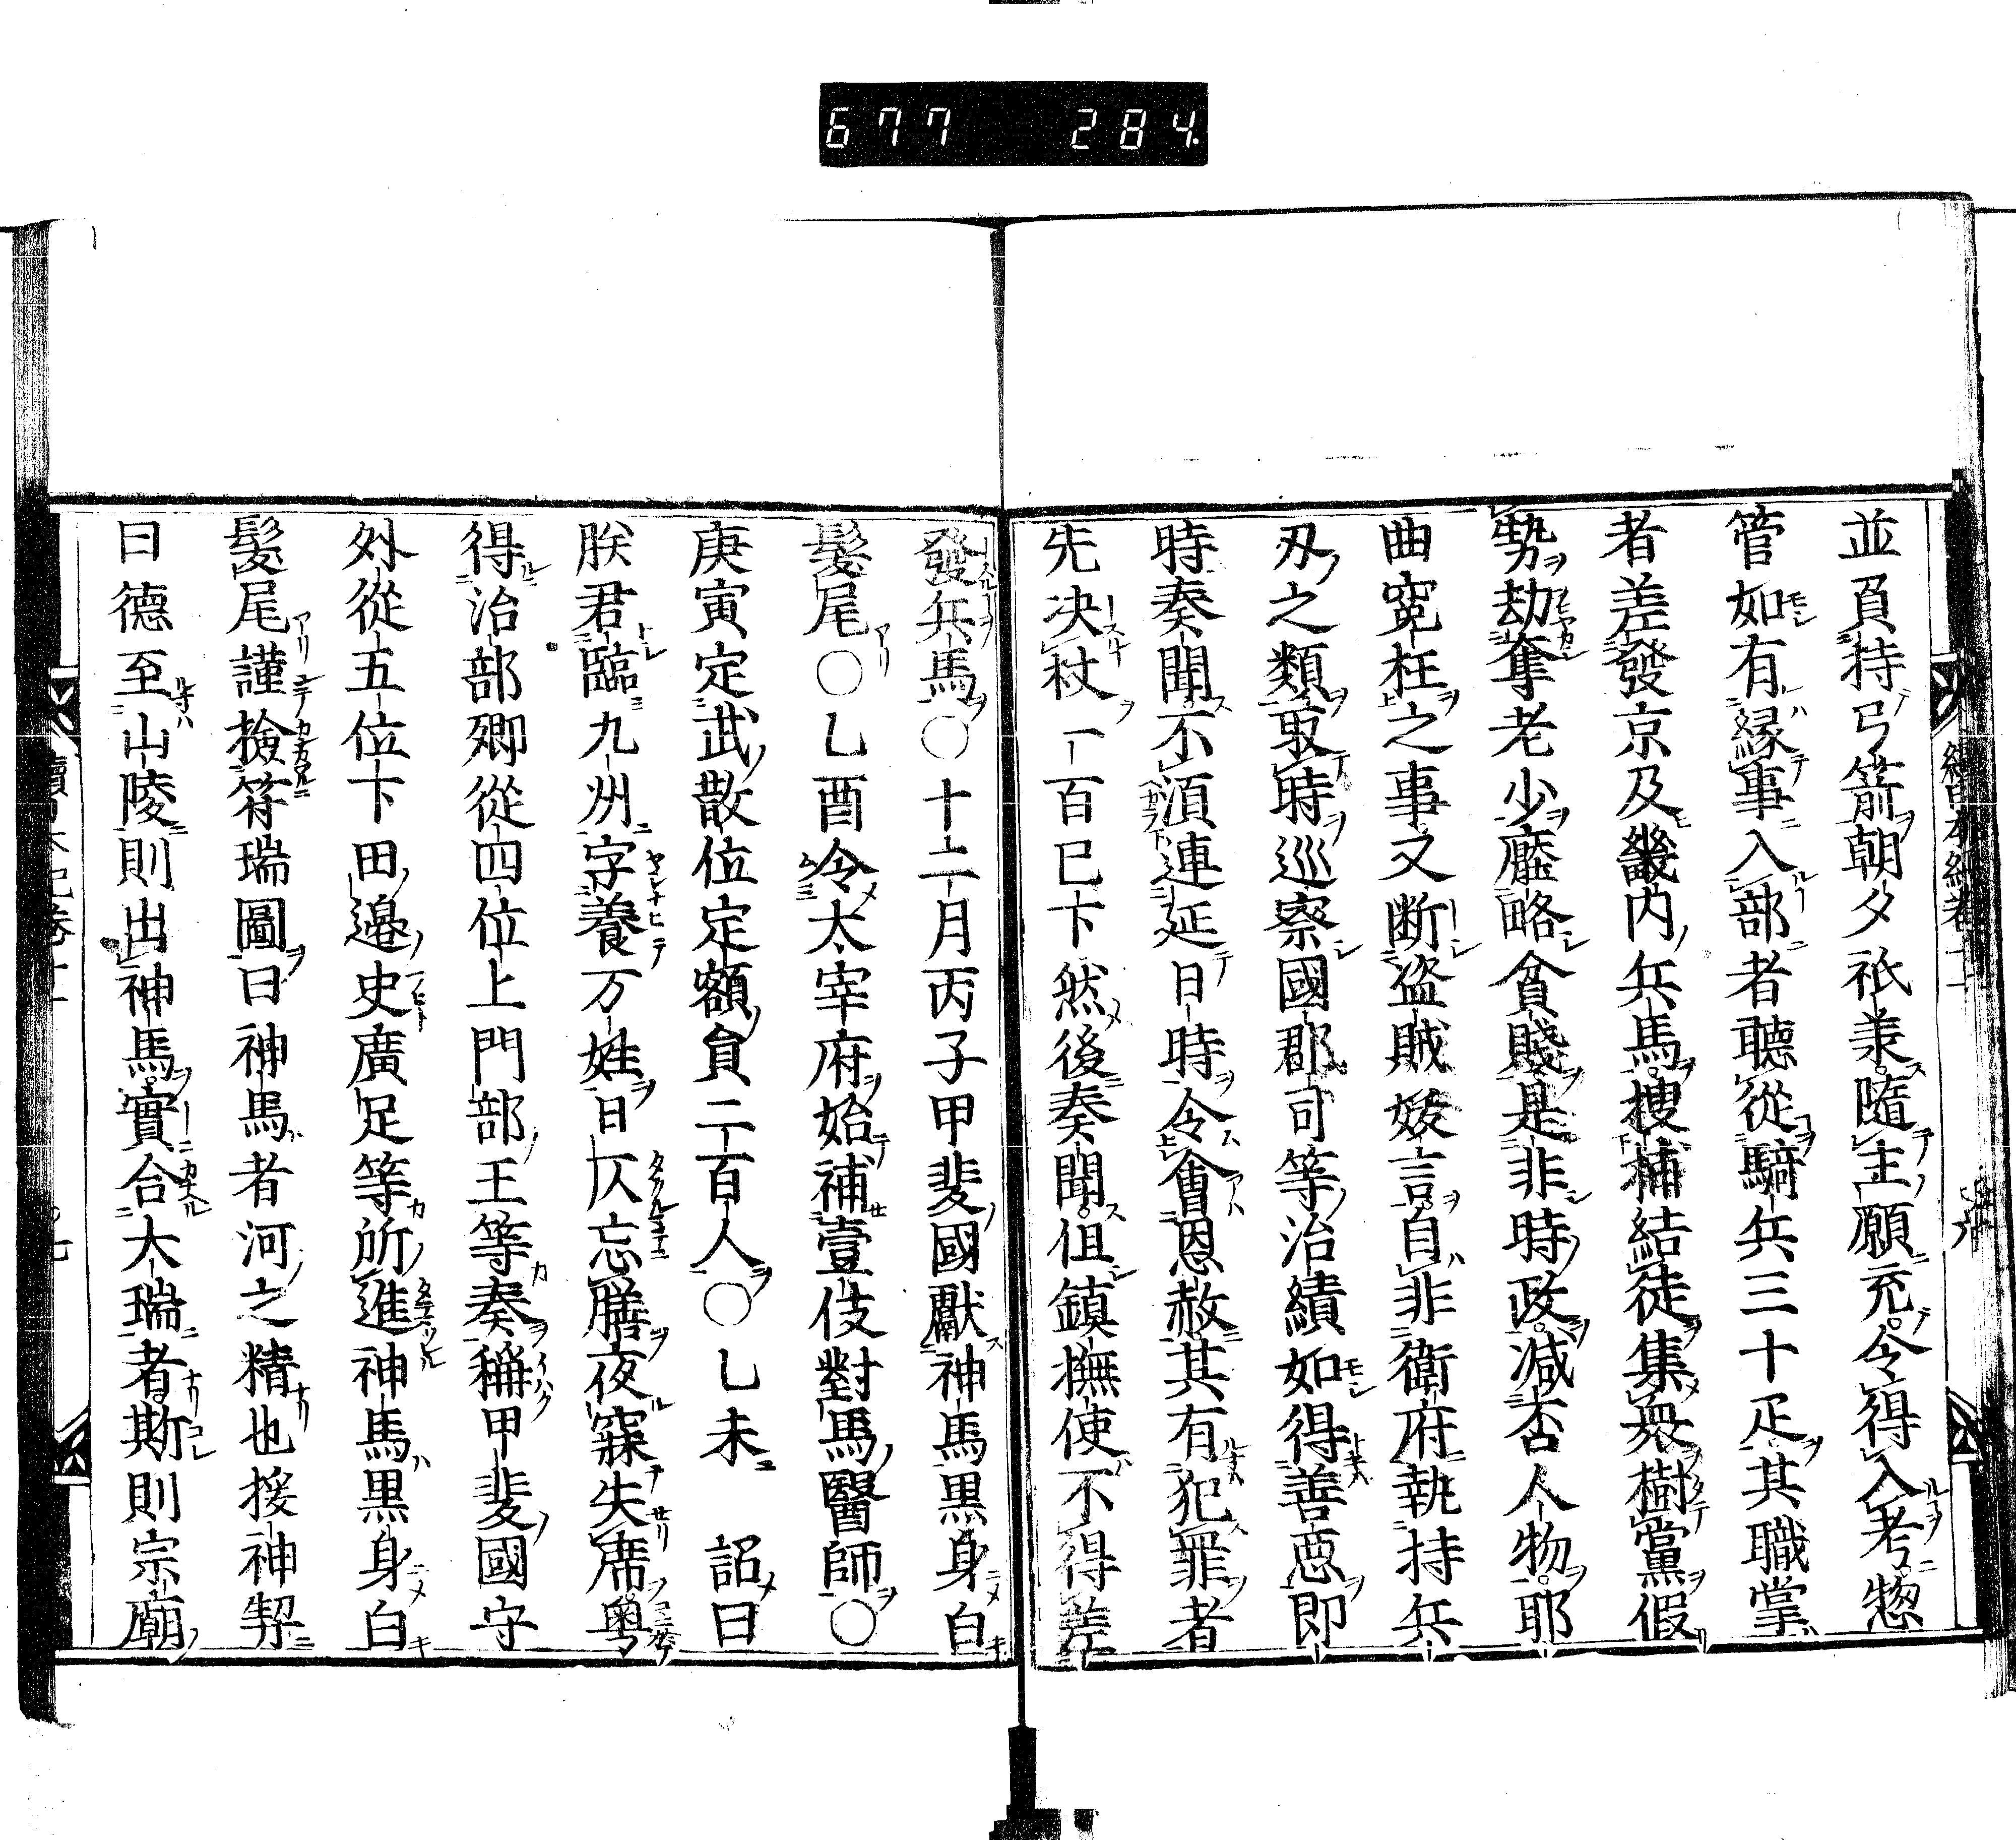 677 284
並負持弓箭朝夕祇羕隨主願充令得入考惣
管如有緣事入部者聽從騎兵三十疋其職掌
者差發京及畿内兵馬搜捕結徒集衆樹黨假
勢劫奪老少壓略貧賤是非時政減否人物耶
曲寃枉之事又断盜賊妖言自非衛府執持兵
刃之類取時巡察國郡司等治績如得善惡即
時奏聞不湏連延日時令會恩赦其有犯罪者
先决杖一百已下然後奏聞但鎮撫使不得差
發兵馬○十二月丙子甲斐國獻神馬黒身白
髮尾○乙酉令大宰府始補壹伎對馬醫師○
庚寅定武散位定額負二百人○乙未 詔曰
朕君臨九州字養万姓日仄忘膳夜寐失席粤
得治部卿從四位上門部王等奏稱甲斐國守
外從五位下田邉史廣足等所進神馬黒身白
髮尾謹撿符瑞圖曰神馬者河之精也援神契
曰德至山陵則出神馬實合大瑞者斯則宗廟